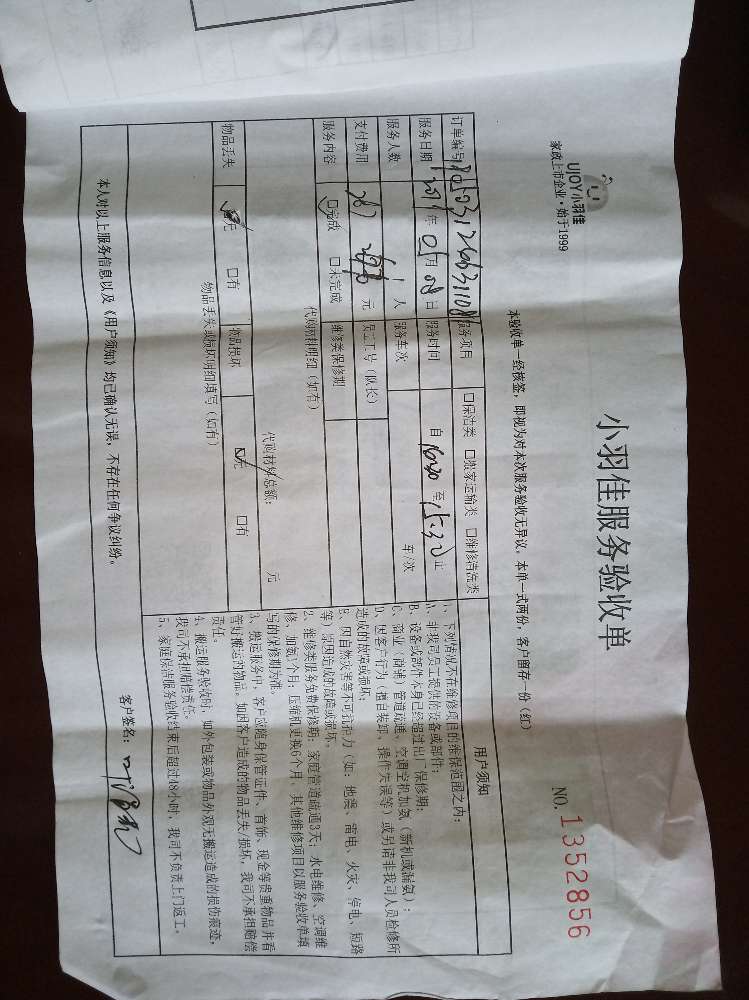 UJOY小羽佳
家政上市企业·始于1999
小羽佳服务验收单
NO. 1352856
本验收单一经核签，即视为对本次服务验收无异议。本单一式两份，客户留存一份（红）
订单编号 服务项目 □保洁类 □搬家运输类 □维修清洗类
服务日期 年 01月 08日 服务时间 自 至 15:30 止
服务人数 1 人 服务车次 车/次
支付费用 元 员工工号（队长）
服务内容 ☑完成 □未完成 维修类保修期
代购材料明细（如有）
代购材料总额： 元
物品丢失 ☑无 □有 物品损坏 ☑无 □有
物品丢失或损坏明细填写（如有）
用户须知
1、下列情况不在维修项目的维保范围之内：
A、非我司员工提供的设备或部件；
B、设备或部件本身已经超过出厂保修期；
C、商业（商铺）管道疏通、空调空机加氨（新机或漏氨）；
D、因客户行为（擅自装卸、操作失误等）或另请非我司人员检修所
造成的故障或损坏；
E、因自然灾害等不可抗拒力（如：地震、雷电、火灾、停电、短路
等）原因造成的故障或损坏。
2、维修类服务免费保修期：家庭管道疏通3天；水电维修、空调维
修、加氨1个月；压缩机更换6个月，其他维修项目以服务验收单填
写的保修期为准。
3、搬运服务中，客户应随身保管证件、首饰、现金等贵重物品并看
管好搬运的物品，如因客户造成的物品丢失/损坏，我司不承担赔偿
责任。
4、搬运服务验收时，如外包装或物品外观无搬运造成的损伤痕迹，
我司不承担赔偿责任。
5、家庭保洁服务验收结束后超过48小时，我司不负责上门返工。
本人对以上服务信息以及《用户须知》均已确认无误，不存在任何争议纠纷。
客户签名：